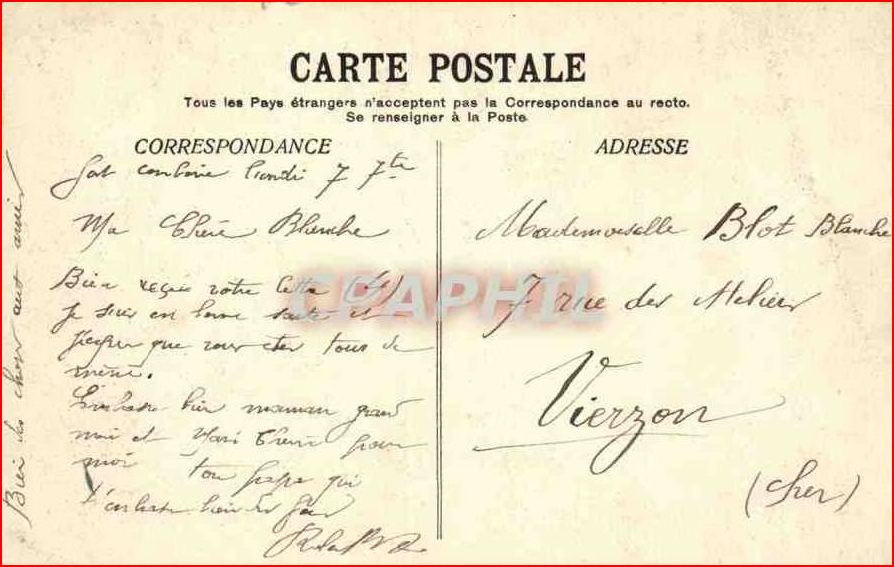 CARTE POSTALE
Tous les Pays étrangers n'acceptent pas la Correspondance au recto.
Se renseigner à la Poste.
CORRESPONDANCE
lundi 7 7bre
Ma Chère Blanche
Bien reçue votre lettre (4)
Je suis en bonne santé et
j'espère que vous êtes tous de
même.
Embrasse bien maman grand
et Marie pour
moi ton papa qui
t'embrasse bien
Bien des choses aux amis
ADRESSE
Mademoiselle Blot Blanche
7 rue des Ateliers
Vierzon
(Cher)
CPAPHIL